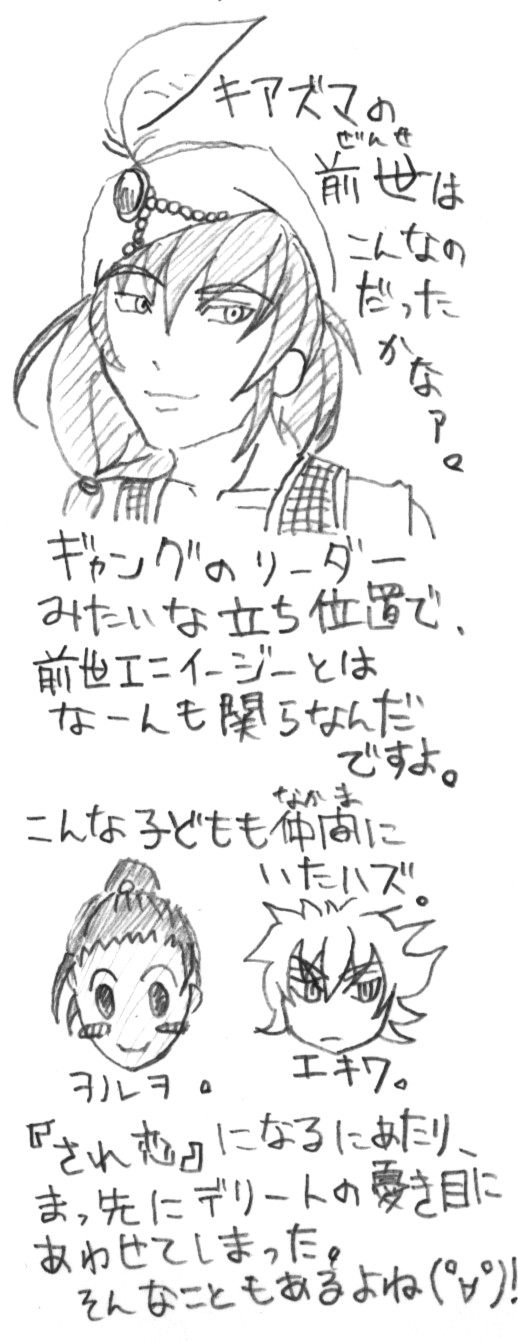 キアズマの
ぜんせ
前世は
こんなの
だった
かなァ。
ギャングのリーダー
みたいな立ち位置で、
前世エニイージーとは
なーんも関らなんだ
ですよ。
なかま
こんな子どもも仲間に
いたハズ。
ヲルヲ。
エキワ。
『され恋』になるにあたり、
まっ先にデリートの憂き目に
あわせてしまった。
そんなこともあるよね(°∀°)!